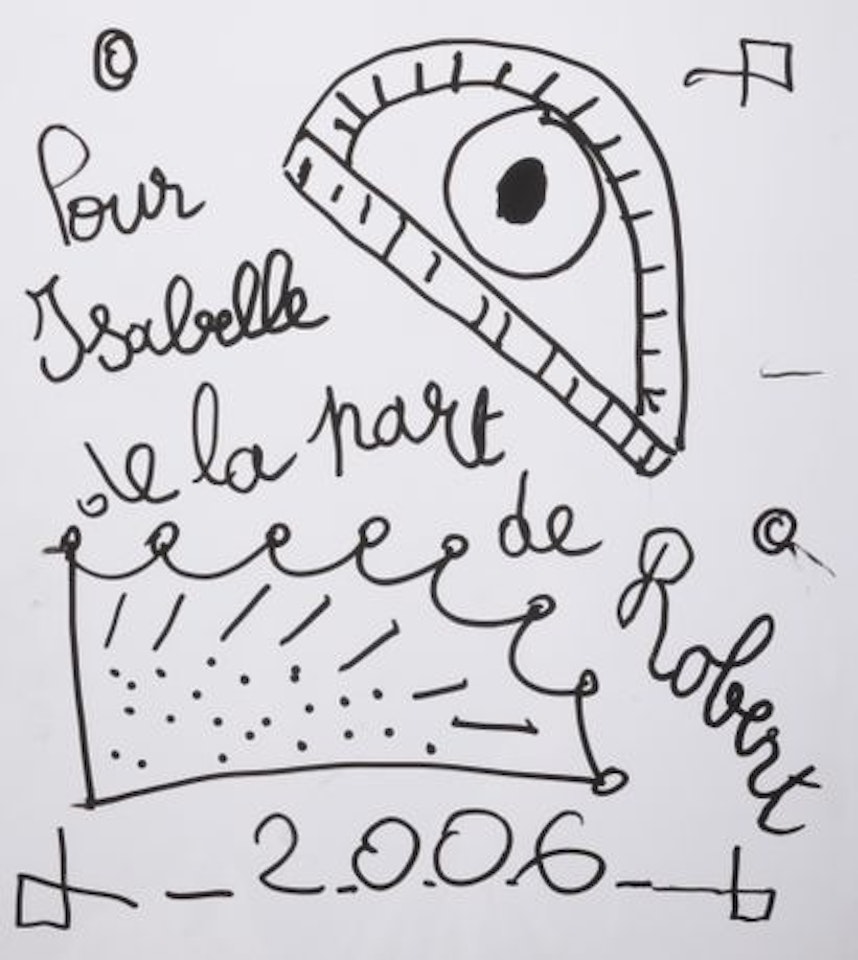 Pour
Isabelle
de la part
de
Robert
2.0.0.6